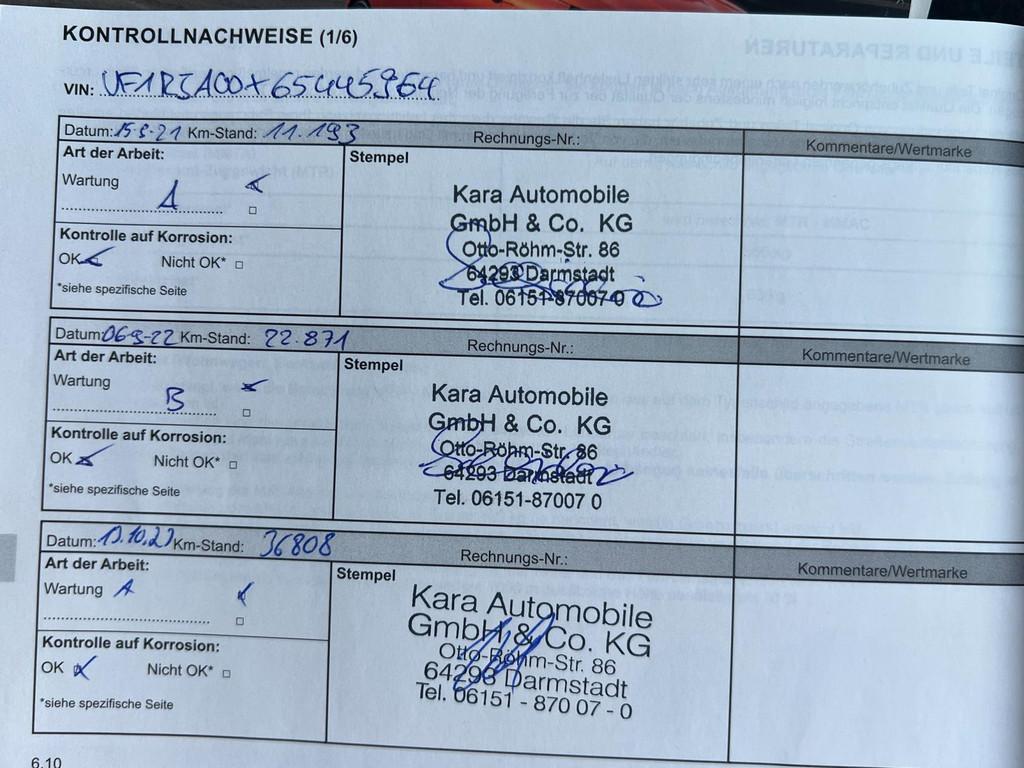 KONTROLLNACHWEISE (1/6)
VIN: VF1RJA00X65445964
Datum: 15-9-21 Km-Stand: 11.193 Rechnungs-Nr.: Kommentare/Wertmarke
Art der Arbeit: Stempel
Wartung A
Kontrolle auf Korrosion:
OK Nicht OK*
*siehe spezifische Seite
Kara Automobile
GmbH & Co. KG
Otto-Röhm-Str. 86
64293 Darmstadt
Tel. 06151-87007 0
Datum: 06-9-22 Km-Stand: 22.871 Rechnungs-Nr.: Kommentare/Wertmarke
Art der Arbeit: Stempel
Wartung B
Kontrolle auf Korrosion:
OK Nicht OK*
*siehe spezifische Seite
Kara Automobile
GmbH & Co. KG
Otto-Röhm-Str. 86
64293 Darmstadt
Tel. 06151-87007 0
Datum: Km-Stand: 36808 Rechnungs-Nr.: Kommentare/Wertmarke
Art der Arbeit: Stempel
Wartung A
Kontrolle auf Korrosion:
OK Nicht OK*
*siehe spezifische Seite
Kara Automobile
GmbH & Co. KG
Otto-Röhm-Str. 86
64293 Darmstadt
Tel. 06151 - 870 07 - 0
6.10